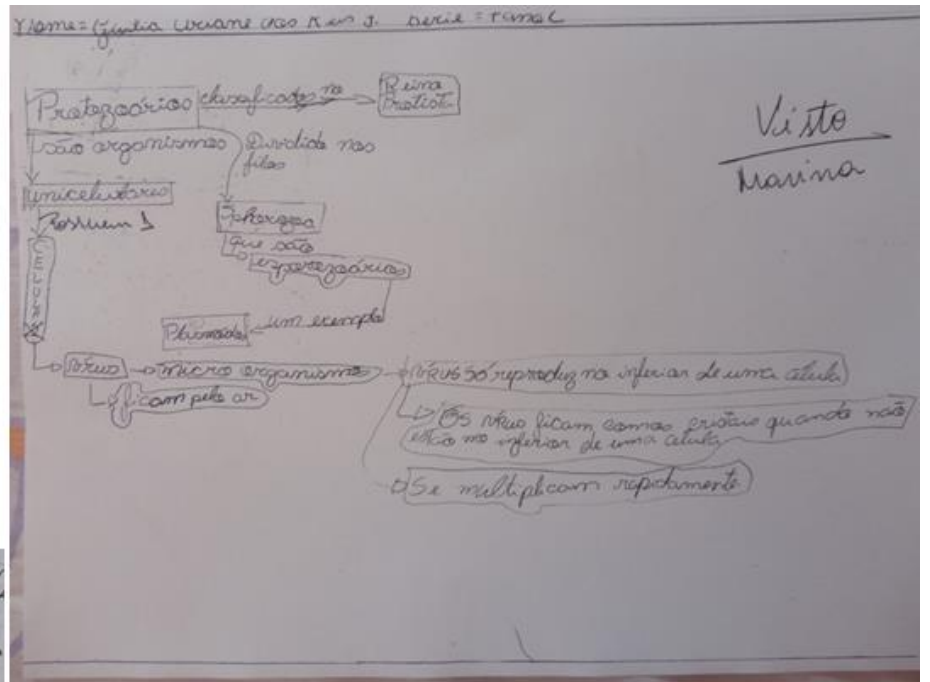 Nome = Giulia
serie = 7 ano C
Protozoários classificados no Reino
Protista
Visto
Marina
são organismos Dividido nos
filos
unicelulares
Possuem 1
que são
esporozoários
um exemplo
vírus micro organismo vírus só reproduz no inferior de uma célula
ficam pelo ar
Os vírus ficam como cristais quando não
estão no inferior de uma célula
Se multiplicam rapidamente